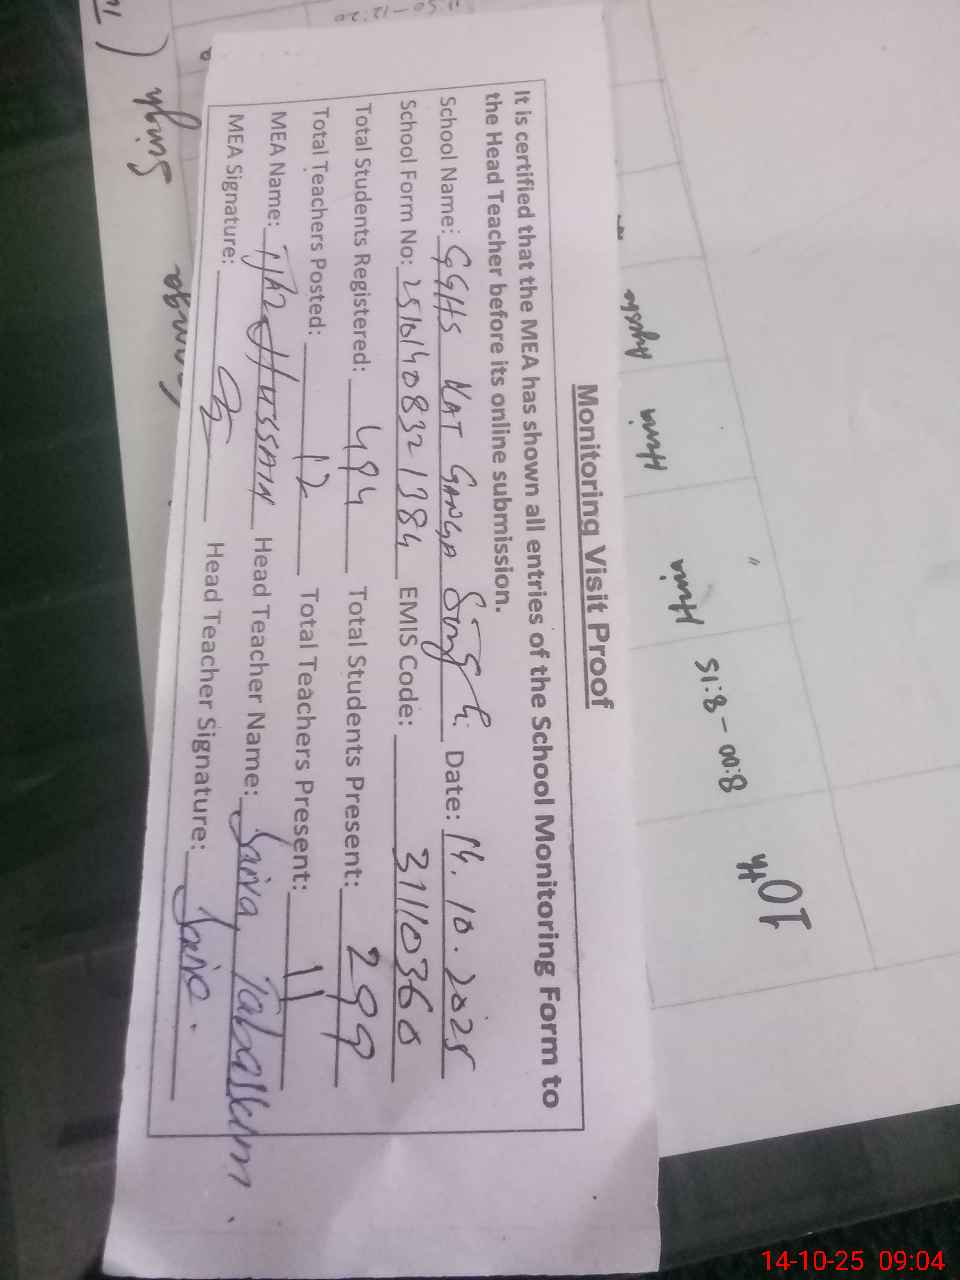 Monitoring Visit Proof
It is certified that the MEA has shown all entries of the School Monitoring Form to
the Head Teacher before its online submission.
School Name: GGHS KAT GANGA Singh. Date: 14.10.2025
School Form No: 25101408321384 EMIS Code: 31110360
Total Students Registered: 494 Total Students Present: 299
Total Teachers Posted: 12 Total Teachers Present: 11
MEA Name: IJAZ HUSSAIN Head Teacher Name: Saira Tabassum.
MEA Signature: Head Teacher Signature: Saira.
10th
8:00 - 8:15
"
Singh
14-10-25 09:04